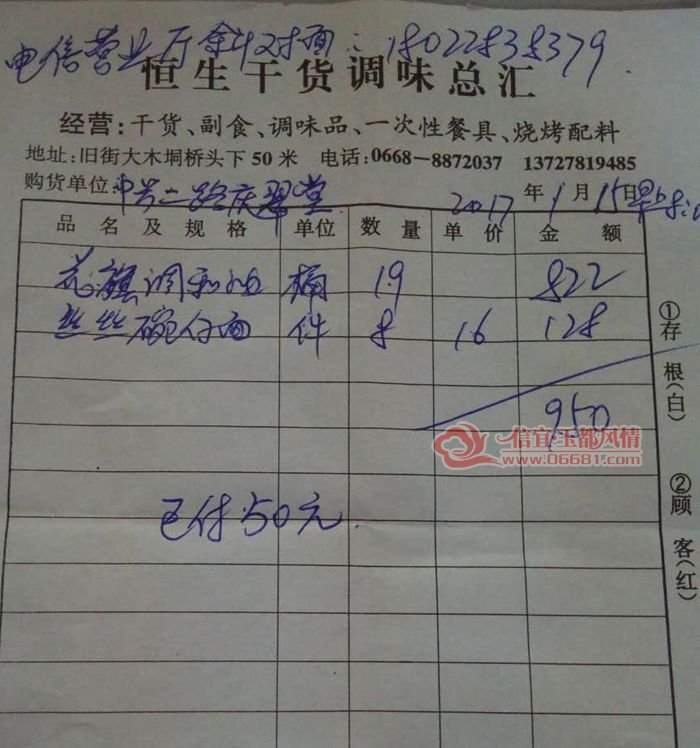 电信营业厅斜对面:18022838379
恒生干货调味总汇
经营:干货、副食、调味品、一次性餐具、烧烤配料
地址:旧街大木垌桥头下50米 电话:0668-8872037 13727819485
购货单位:中兴二路庆翠堂 2017年1月15日早上8:
品名及规格 单位 数量 单价 金额
花旗调和油 桶 19 822
丝丝碗仔面 件 8 16 128
950
已付50元
①存根(白)
②顾客(红)
信宜玉都风情
www.06681.com